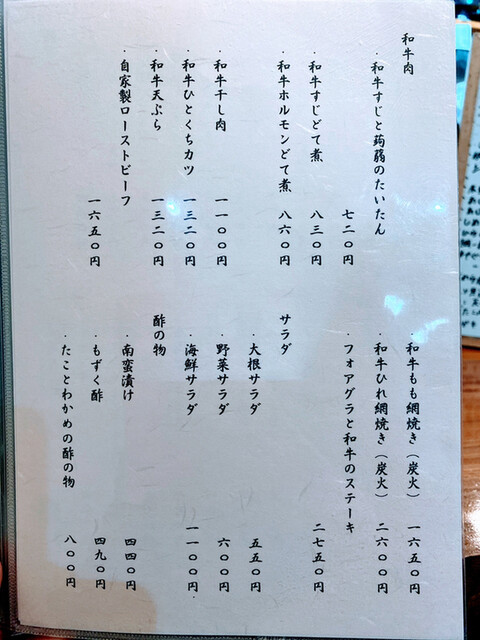 和牛肉
・和牛すじと蒟蒻のたいたん 七二〇円
・和牛すじどて煮 八三〇円
・和牛ホルモンどて煮 八六〇円
・和牛干し肉 一一〇〇円
・和牛ひとくちカツ 一三二〇円
・和牛天ぷら 一三二〇円
・自家製ローストビーフ 一六五〇円
・和牛もも網焼き（炭火） 一六五〇円
・和牛ひれ網焼き（炭火） 二六〇〇円
・フォアグラと和牛のステーキ 二七五〇円
サラダ
・大根サラダ 五五〇円
・野菜サラダ 六〇〇円
・海鮮サラダ 一一〇〇円
酢の物
・南蛮漬け 四四〇円
・もずく酢 四九〇円
・たことわかめの酢の物 八〇〇円